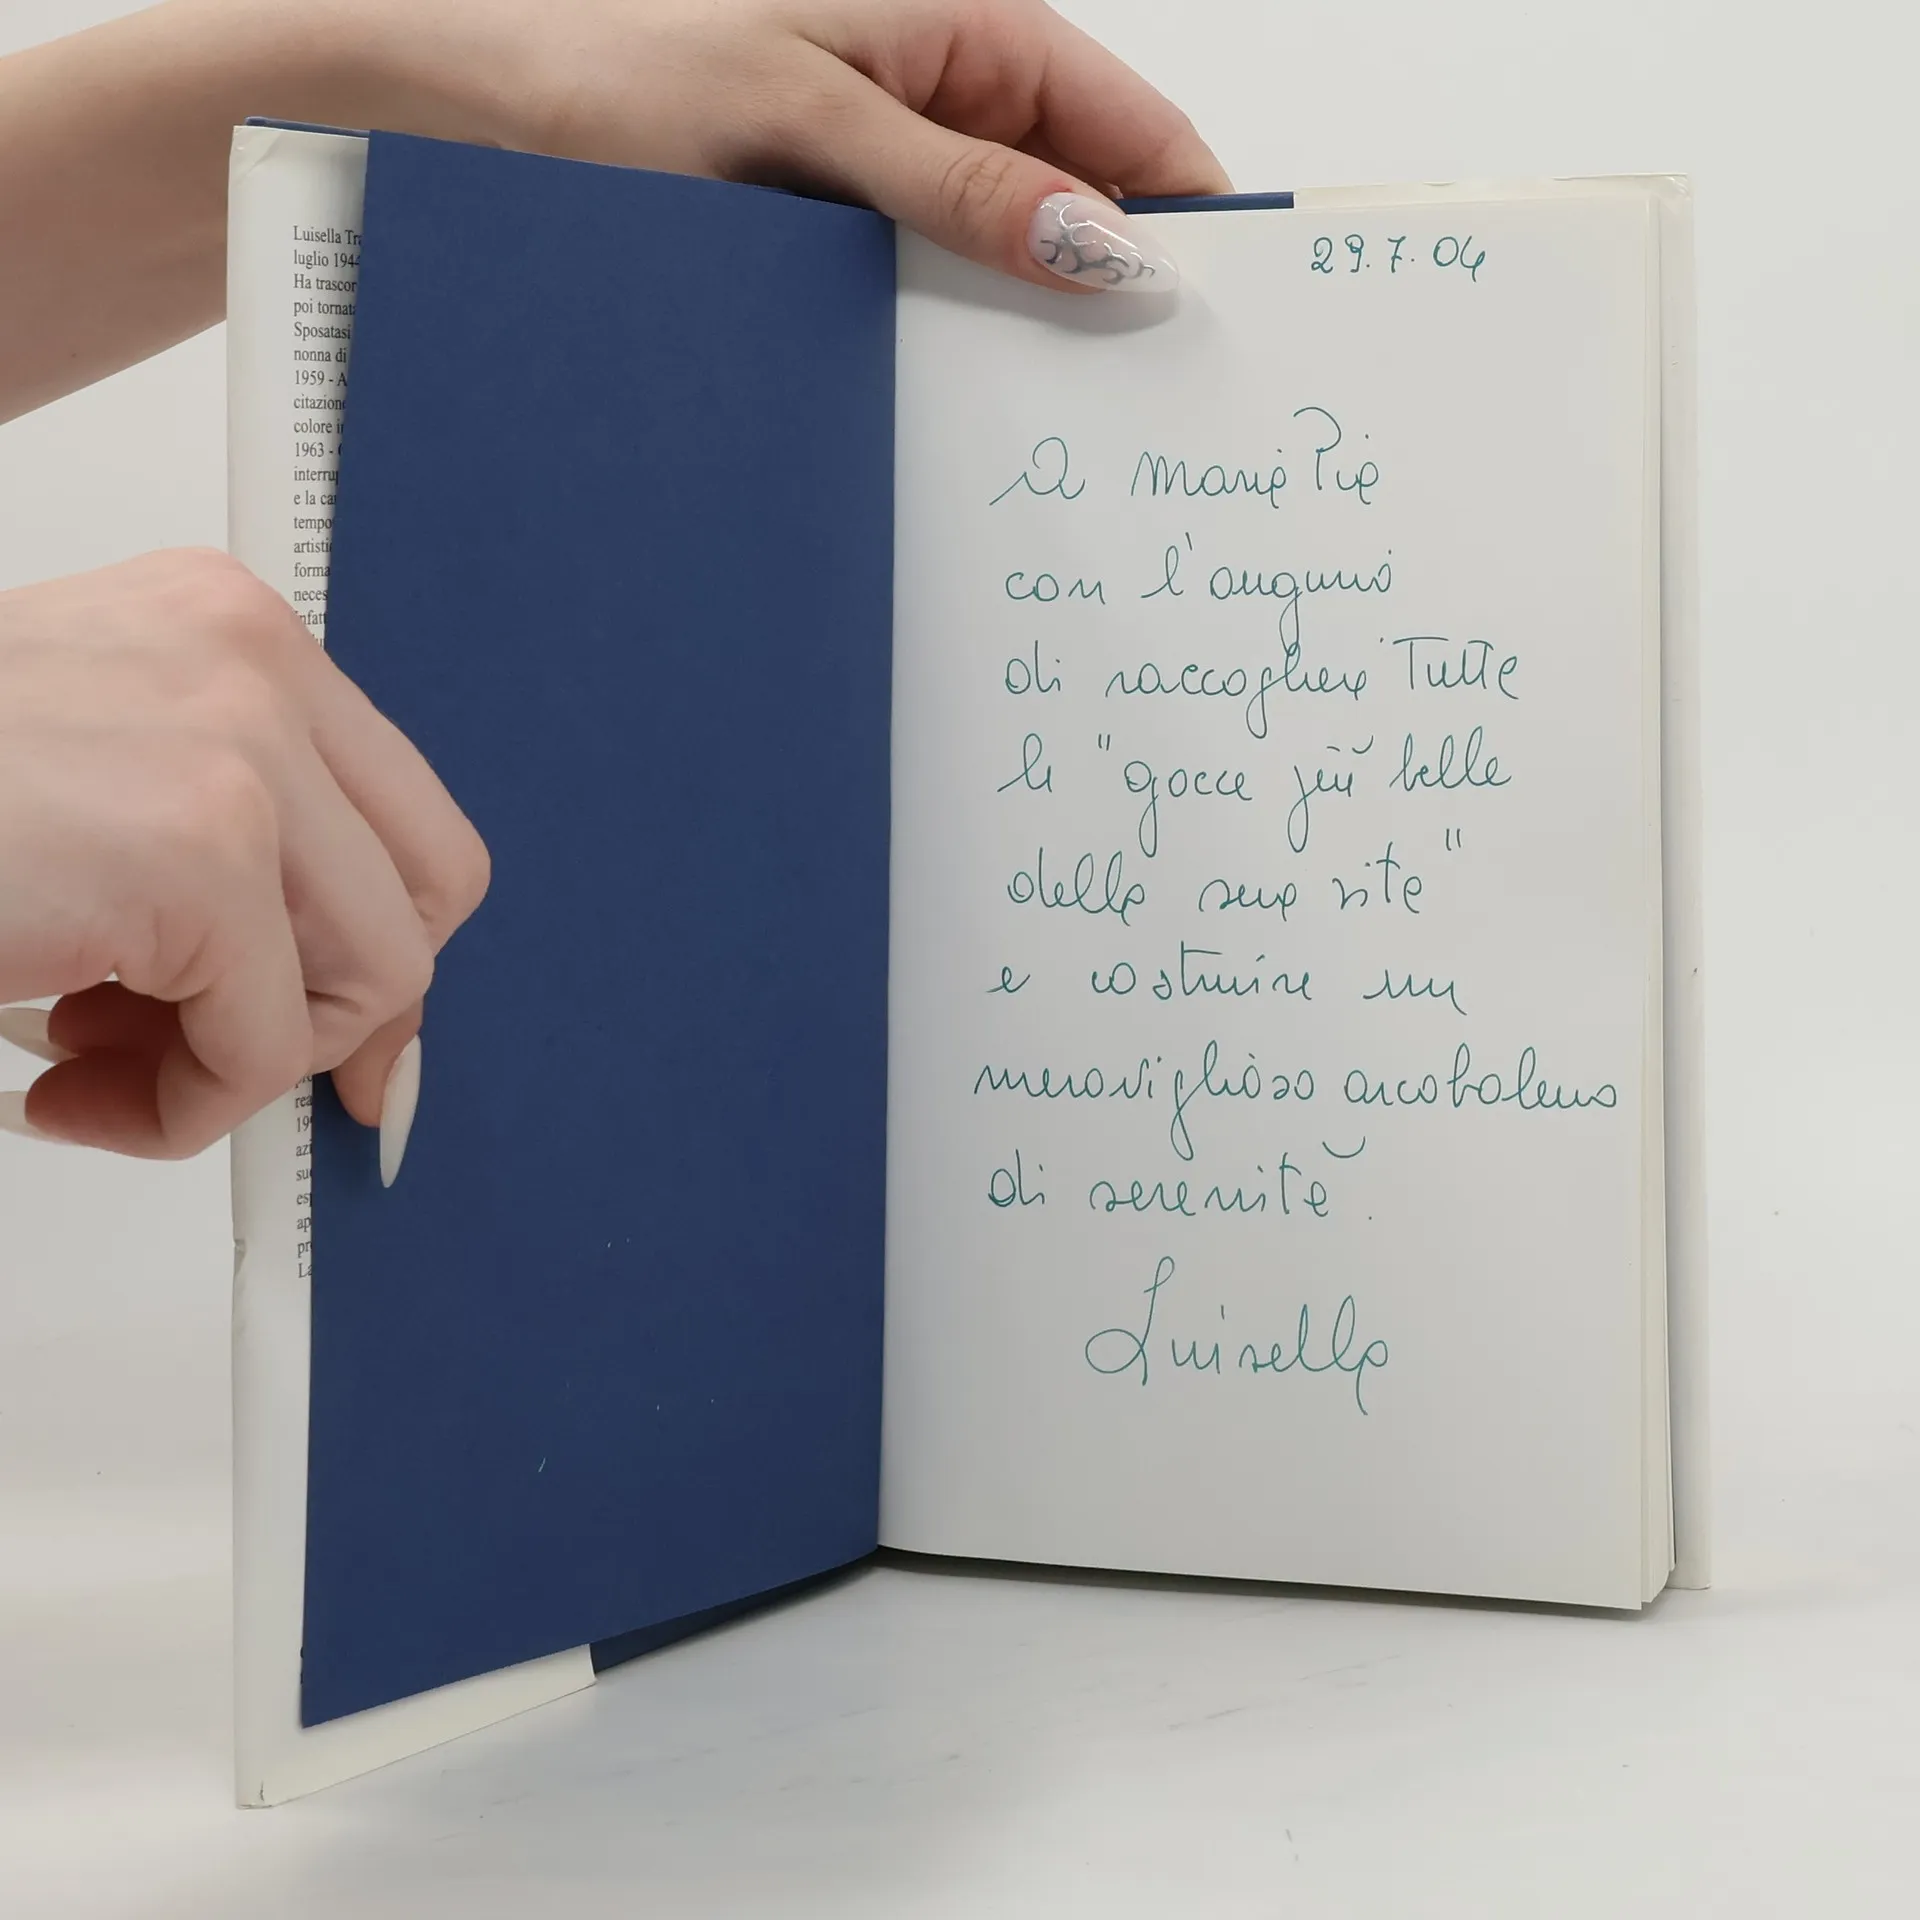 Luisella Tra
luglio 1944
Ha trascor
poi tornata
Sposatasi
nonna di
1959 - A
citazione
colore in
1963 - 
interrup
e la car
tempo
artisti
forma
neces
nfatt
rea
199
azi
suc
esp
ap
pr
La
29.7.04
A Maria Pia
con l'augurio
di raccogliere Tutte
le "gocce più belle
della sua vita"
e costruire un
meraviglioso arcobaleno
di serenità.
Luisella